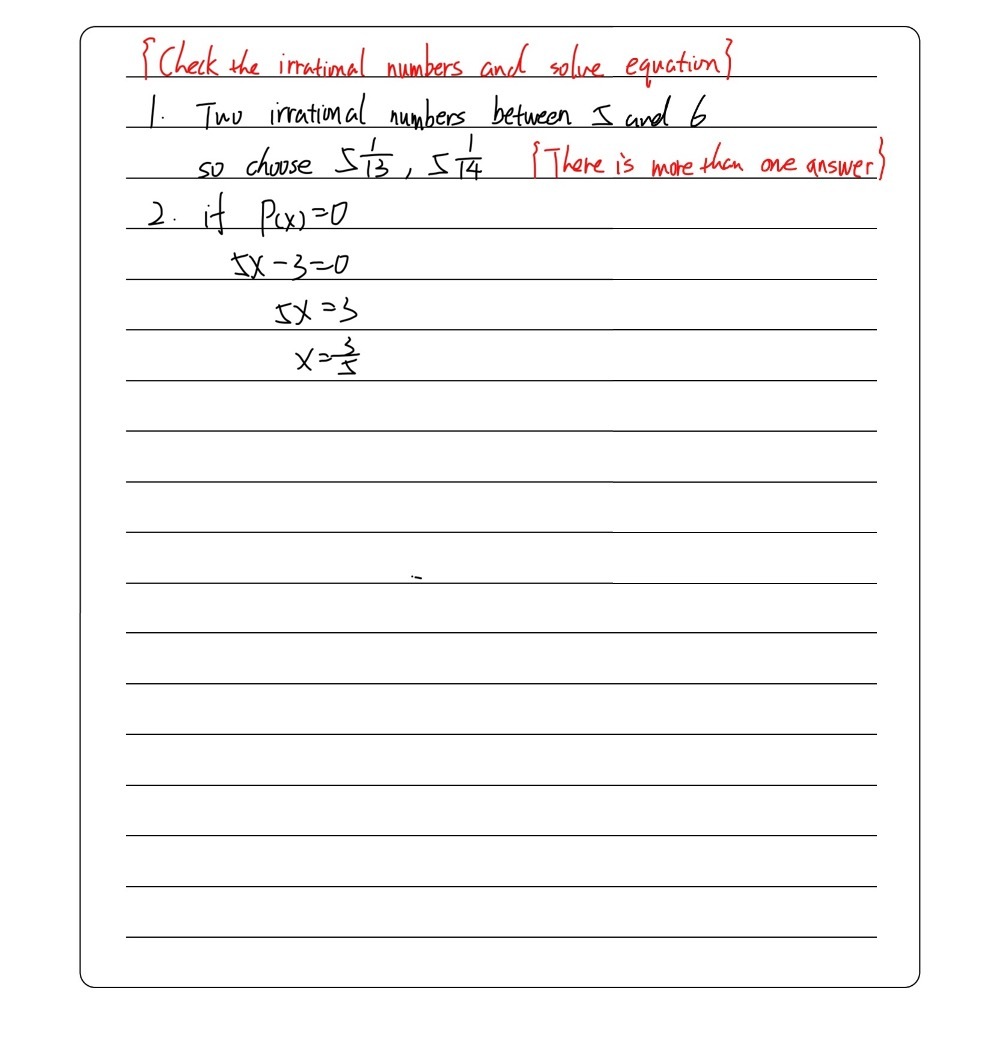 {Check the irrational numbers and solve equation}
1. Two irrational numbers between 5 and 6
so choose 5 1/13 , 5 1/14 {There is more than one answer}
2. if P(x)=0
5x-3=0
5x=3
x=3/5